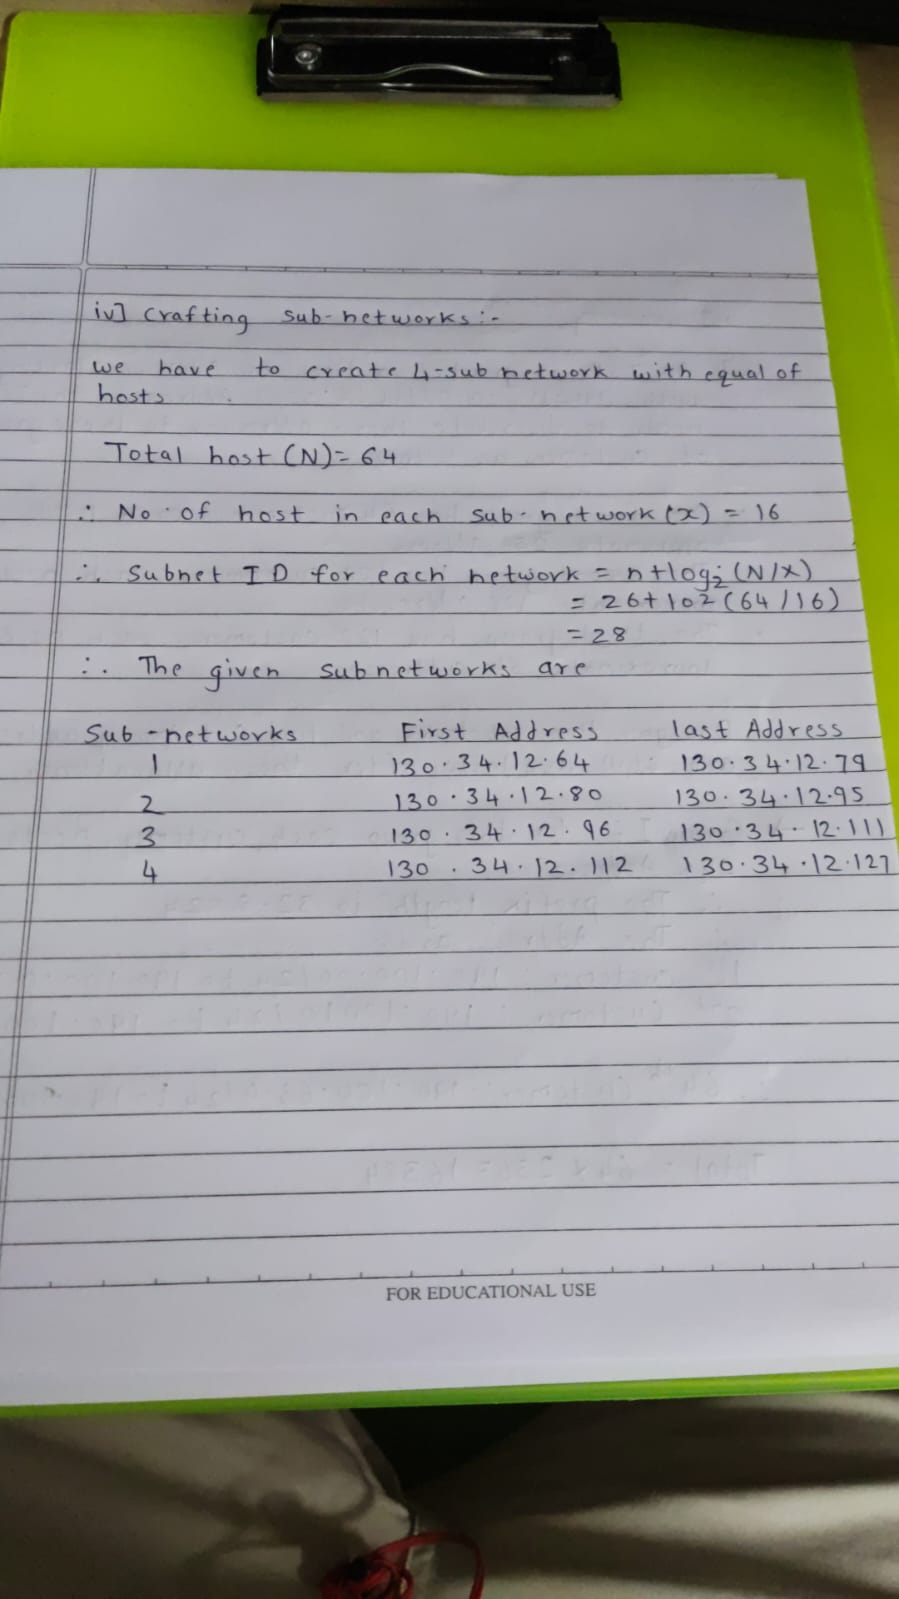 iv] Crafting sub-networks :-
we have to create 4-sub network with equal of
hosts
Total host (N) = 64
∴ No. of host in each sub-network (x) = 16
∴ Subnet ID for each network = n+log₂ (N/X)
= 26+102 (64/16)
= 28
∴ The given subnetworks are
Sub-networks First Address last Address
1 130.34.12.64 130.34.12.79
2 130.34.12.80 130.34.12.95
3 130.34.12.96 130.34.12.111
4 130.34.12.112 130.34.12.127
FOR EDUCATIONAL USE